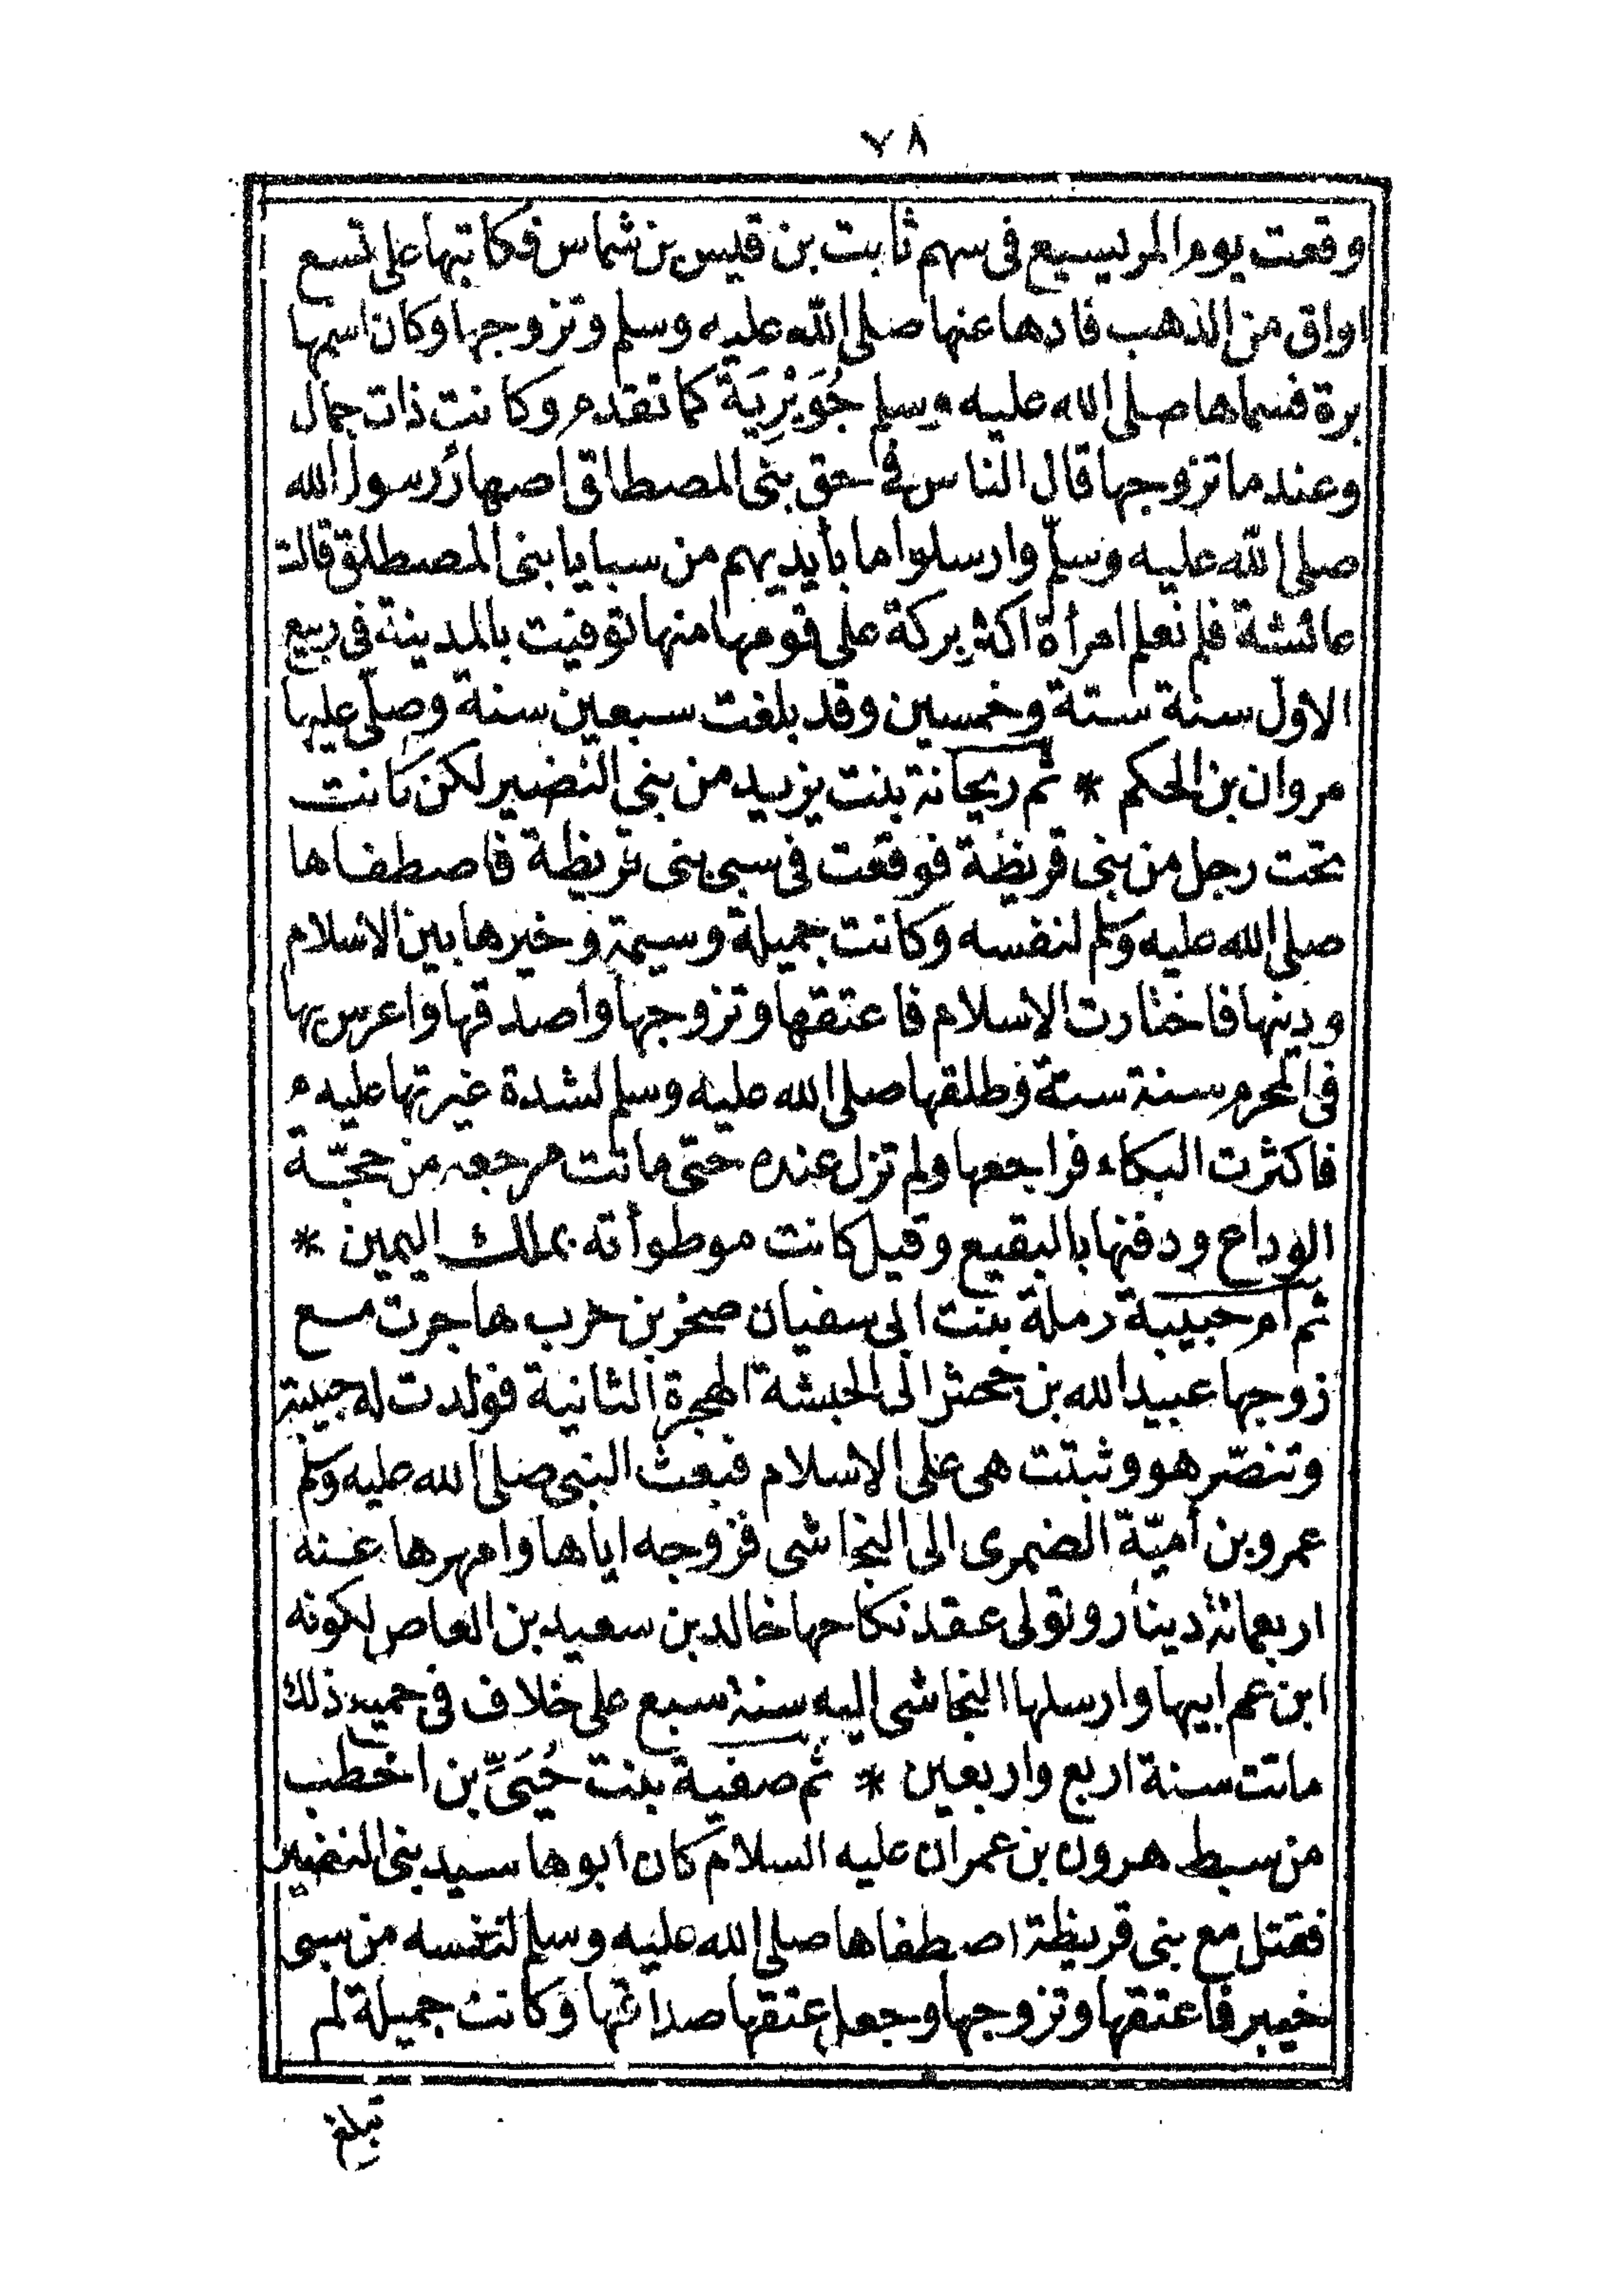 ٧٨
وقعت يوم المريسيع فى سهم ثابت بن قيس بن شماس فكاتبها على تسع
اواق من الذهب فادها عنها صلى الله عليه وسلم وتزوجها وكان اسمها
برة فسماها صلى الله عليه وسلم جُوَيْرِيَة كما تقدم وكانت ذات جمال
وعندما تزوجها قال الناس فى حق بنى المصطلق اصهار رسول الله
صلى الله عليه وسلّم وارسلوا ما بأيديهم من سبايا بنى المصطلق قالت
عائشة فلم نعلم امرأة اكثر بركة على قومها منها توفيت بالمدينة فى ربيع
الاول سنة ستة وخمسين وقد بلغت سبعين سنة وصلّى عليها
مروان بن الحكم * ثم ريحانة بنت يزيد من بنى النضير لكن كانت
تحت رجل من بنى قريظة فوقعت فى سبى بنى قريظة فاصطفاها
صلى الله عليه وسلم لنفسه وكانت جميلة وسيمة وخيرها بين الاسلام
ودينها فاختارت الاسلام فاعتقها وتزوجها واصدقها واعرس بها
فى المحرم سنة ستة وطلقها صلى الله عليه وسلم لشدة غيرتها عليه
فاكثرت البكاء فراجعها ولم تزل عنده حتى ماتت مرجعه من حجّة
الوداع ودفنها بالبقيع وقيل كانت موطوأته بملك اليمين *
ثم ام حبيبة رملة بنت ابى سفيان صخر بن حرب هاجرت مع
زوجها عبيد الله بن جحش الى الحبشة الهجرة الثانية فولدت له حبيبة
وتنصّر هو وثبتت هى على الاسلام فبعث النبى صلى الله عليه وسلم
عمرو بن أميّة الضمرى الى النجاشى فزوجه اياها وامهرها عنه
اربعمائة دينار وتولى عقد نكاحها خالد بن سعيد بن العاص لكونه
ابن عم ابيها وارسلها النجاشى اليه سنة سبع على خلاف فى جميع ذلك
ماتت سنة اربع واربعين * ثم صفية بنت حُيَىِّ بن اخطب
من سبط هرون بن عمران عليه السلام كان ابوها سيد بنى النضير
فقتل مع بنى قريظة اصطفاها صلى الله عليه وسلم لنفسه من سبى
خيبر فاعتقها وتزوجها وجعل عتقها صداقها وكانت جميلة لم
تبلغ